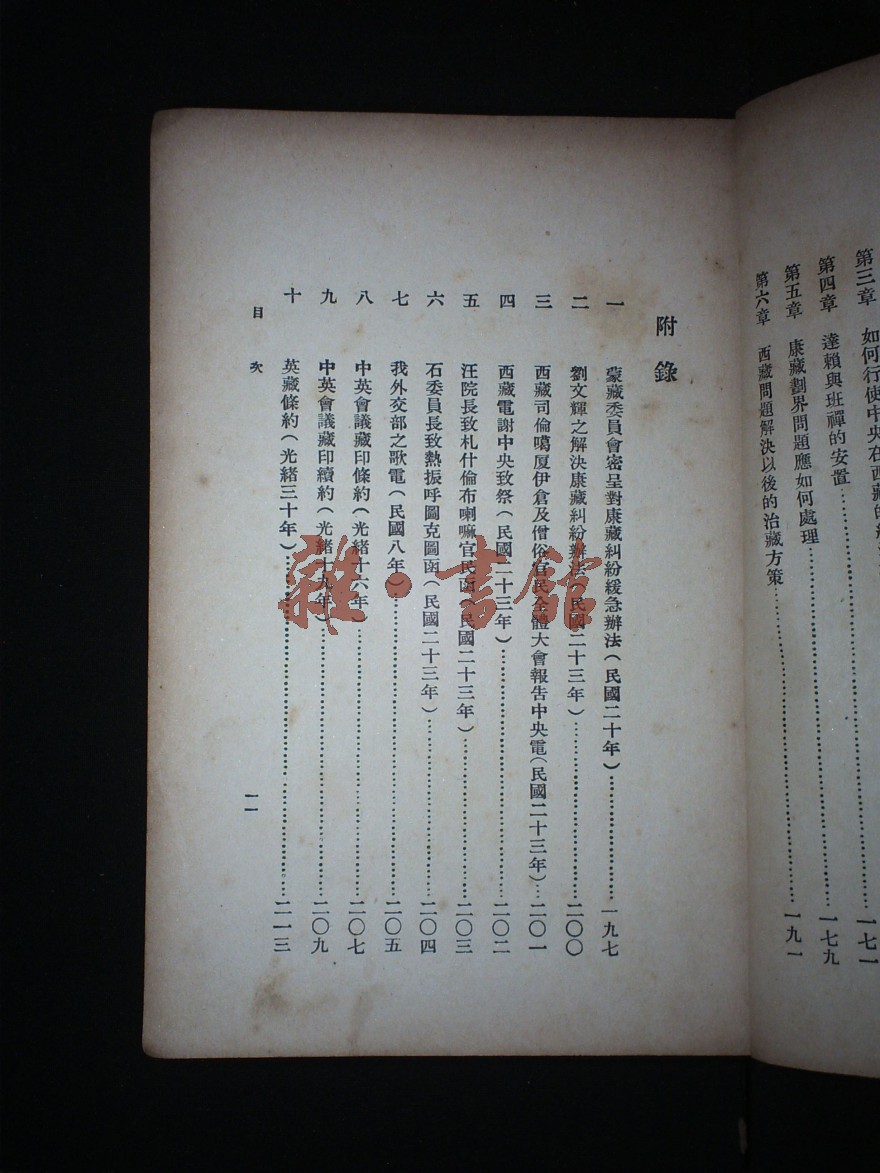 第三章 如何行使中央在西藏的……一七一
第四章 達賴與班禪的安置……一七九
第五章 康藏劃界問題應如何處理
第六章 西藏問題解決以後的治藏方策……一九一
附錄
一 蒙藏委員會密呈對康藏糾紛緩急辦法(民國二十年)……一九七
二 劉文輝之解決康藏糾紛辦法(民國二十三年)……二〇〇
三 西藏司倫噶厦伊倉及僧俗官民全體大會報告中央電(民國二十三年)……二〇一
四 西藏電謝中央致祭(民國二十三年)……二〇二
五 汪院長致札什倫布喇嘛官民函(民國二十三年)……二〇三
六 石委員長致熱振呼圖克圖函(民國二十三年)……二〇四
七 我外交部之歌電(民國八年)……二〇五
八 中英會議藏印條約(光緒十六年)……二〇七
九 中英會議藏印續約(光緒十九年)……二〇九
十 英藏條約(光緒三十年)……二一三
目次
一一
雜·書館